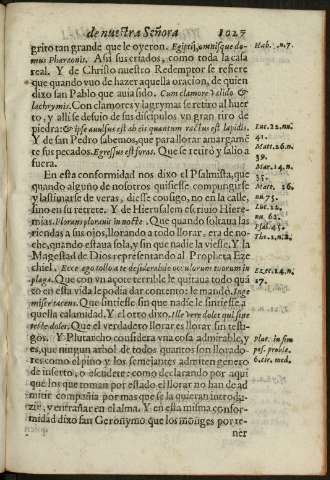 de nuestra Señora 1027
grito tan grande que le oyeron. Egiptij, omnisque do-
mus Pharaonis. Asi sus criados, como toda la casa
real. Y de Christo nuestro Redemptor se refiere
que quando vuo de hazer aquella oracion, de quien
dixo san Pablo que auia sido. Cum clamore valido &
lachrymis. Con clamores y lagrymas se retiro al huer
to, y alli se desuio de sus discipulos vn gran tiro de
piedra: & ipse auulsus est ab eis quantum iactus est lapidis.
Y de san Pedro sabemos, que para llorar amargamẽ
te sus pecados. Egressus est foras. Que se retirò y salio a
fuera.
En esta conformidad nos dixo el Psalmista, que
quando alguno de nosotros quisiesse compungirse
y lastimarse de veras, diesse consigo, no en la calle,
sino en su retrete. Y de Hierusalem escriuio Hiere-
mias. Plorans plorauit in nocte. Que quando soltaua las
riendas a sus ojos, llorando a todo llorar, era de no-
che, quando estaua sola, y sin que nadie la viesse. Y la
Magestad de Dios representando al Propheta Eze
chiel. Ecce ego tollo a te desiderabile oculorum tuorum in
plaga. Que con vn açote terrible le quitaua todo quã
to en esta vida le podia dar contento: le mandò. Inge
misce tacens. Que sintiesse sin que nadie le sintiesse a
quella calamidad. Y el otro dixo. Ille vere dolet qui sine
teste dolet. Que el verdadero llorar es llorar sin testi-
gos. Y Plutarcho considera vna cosa admirable, y
es, que ningun arbol de todos quantos son llorado-
res como el pino y los semejantes admiten genero
de inserto, o escudete: como declarando por aqui
que los que toman por estado el llorar no han de ad
mitir compañia por mas que se la quieran introdu-
zir, y entrañar en el alma. Y en esta misma confor-
midad dixo san Geronymo que los monges por te-
ner
Hab. n. 7.
Luc. 22. nu.
41.
Matt. 26. n.
39.
Mar. 14. n.
35.
Matt. 26.
nu 75.
Luc. 22.
nu. 62.
Psal. 45.
Thr. 1. n. 2.
Eze. 24. n.
17.
Plut. in sim